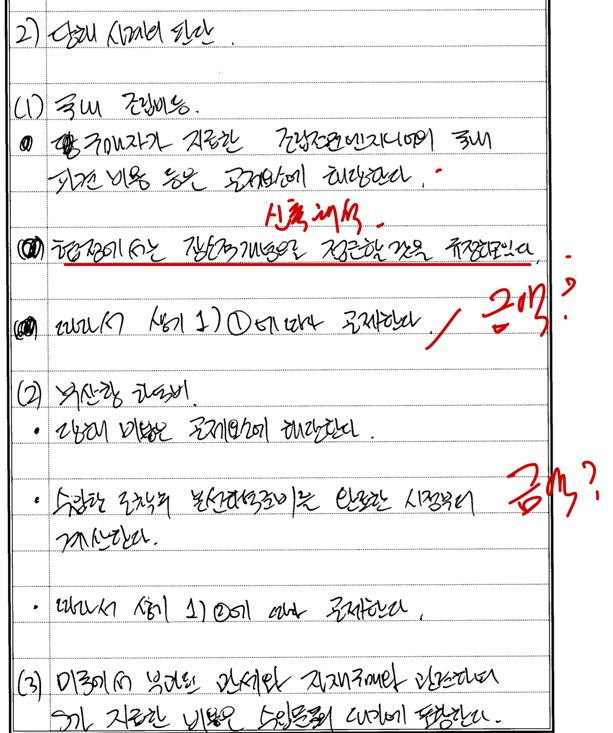 2) 당해 사례의 판단.
(1) 국내 조립비용.
• 구매자가 지급한 조립전문엔지니어의 국내
파견 비용 등은 공제요소에 해당한다.
신축해석.
협정에서는 개념으로 접근할 것을 규정하고있다.
따라서 상기 1) ①에 따라 공제한다. 금액?
(2) 부산항 하역비.
• 당해 비용은 공제요소에 해당한다.
금액?
• 수입항 도착의 본선하역준비를 완료한 시점부터
계산한다.
• 따라서 상기 1) ②에 따라 공제한다.
(3) 미국에서 부과된 관세와 관련하여
지급한 비용은 수입물품의 대가에 포함한다.